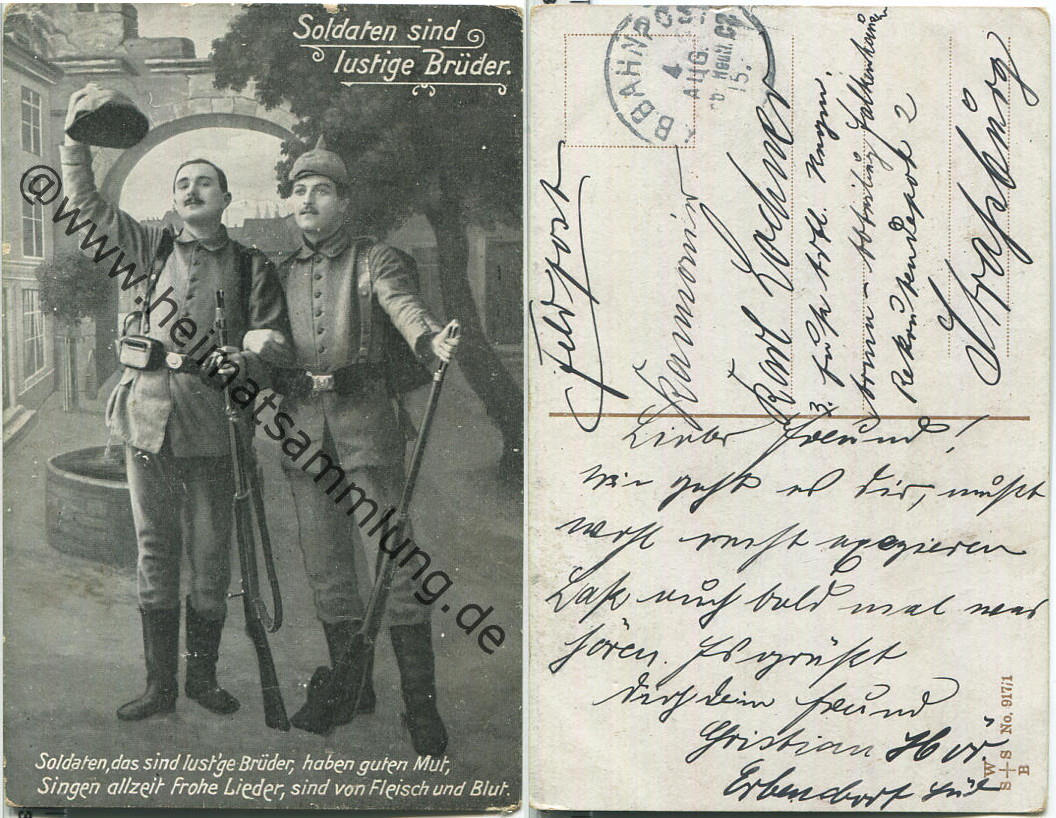 Soldaten sind
lustige Brüder.
@www.heimatsammlung.de
Soldaten, das sind lust'ge Brüder, haben guten Mut,
Singen allzeit frohe Lieder, sind von Fleisch und Blut.
BAHNPOST
4
AUG.
15.
Feldpost
Kanonier
Karl Lochner
Rekrutendepot 2
Straßburg
Lieber Freund!
wie geht es dir, mußt
wohl recht exezieren
Laß auch bald mal was
hören. Es grüßt
dich dein Freund
Christian
Erbendorf
W
S+S No. 917/1
B